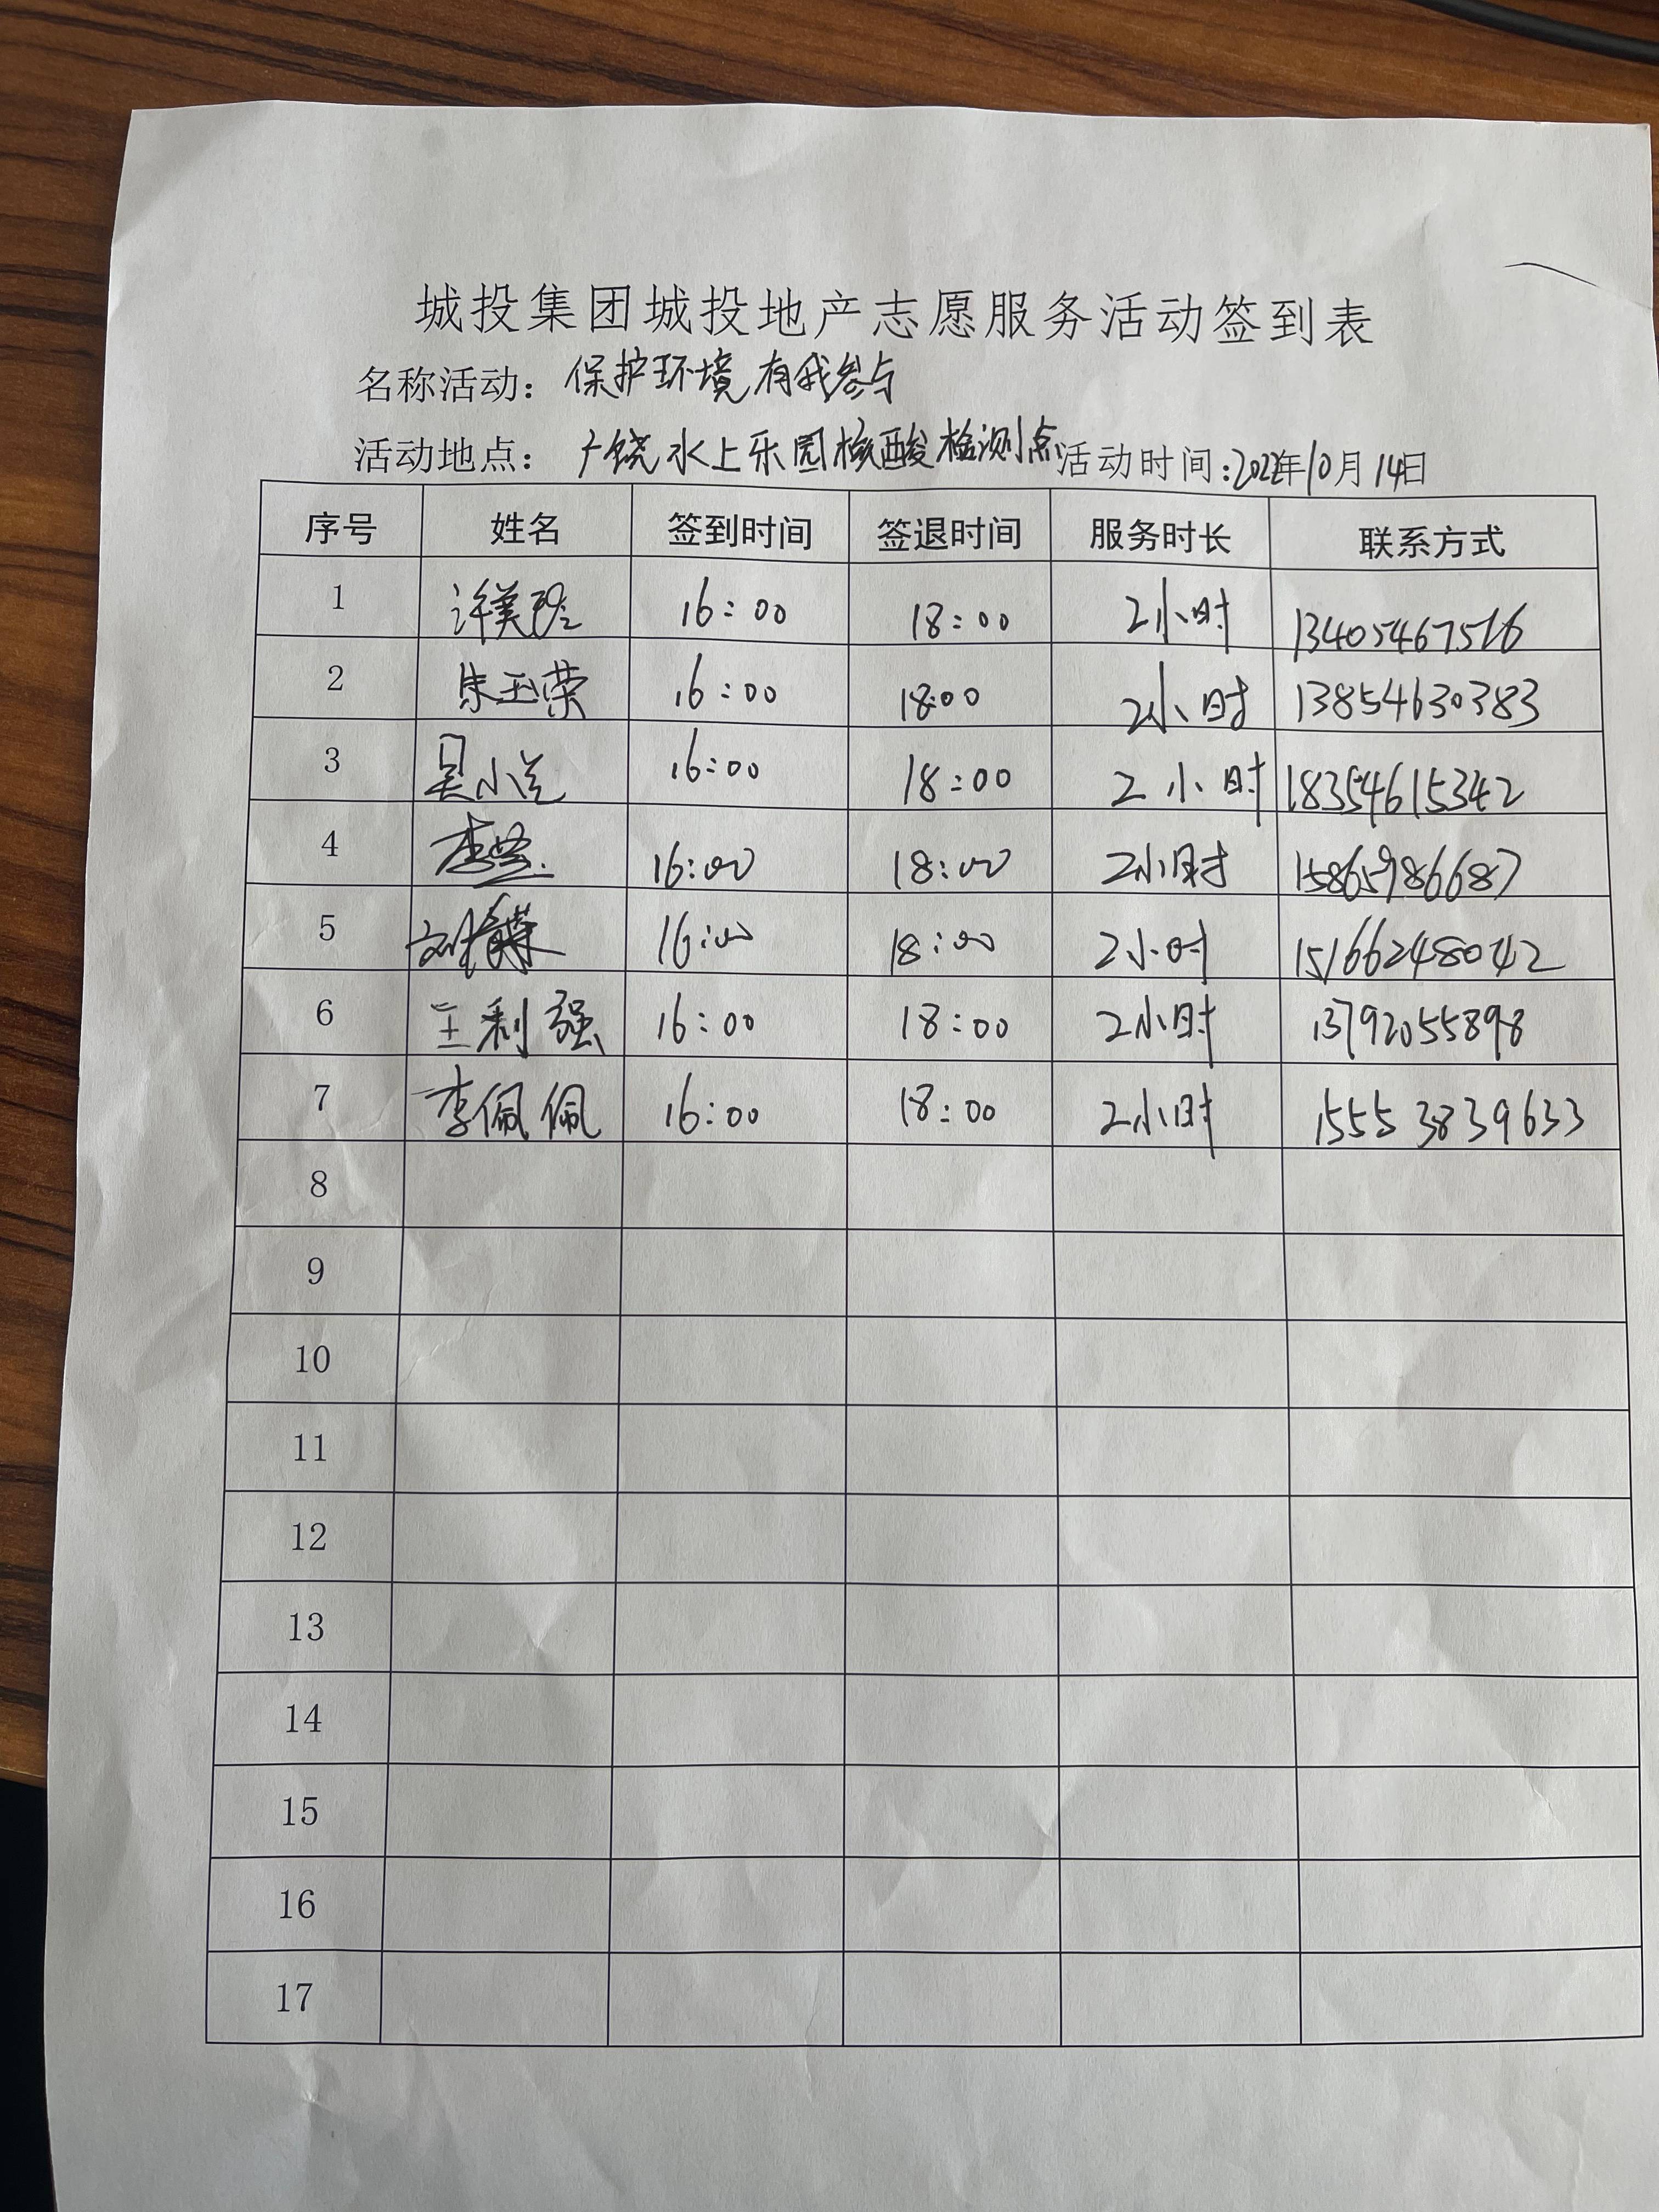 城投集团城投地产志愿服务活动签到表
名称活动：保护环境,有我参与
活动地点：广饶水上乐园核酸检测点 活动时间：2022年10月14日
序号 姓名 签到时间 签退时间 服务时长 联系方式
1 许美玲 16:00 18:00 2小时 13405467516
2 朱玉荣 16:00 18:00 2小时 13854630383
3 吴小 16:00 18:00 2小时 18354615342
4 李 16:00 18:00 2小时 15865986687
5 刘 16:00 18:00 2小时 15166248042
6 王利强 16:00 18:00 2小时 13792055898
7 李佩佩 16:00 18:00 2小时 15553839633
8
9
10
11
12
13
14
15
16
17